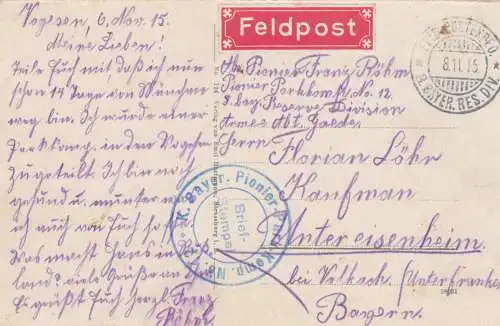 Vogesen, 6. Nov. 15.
Meine Lieben!
Teile Euch mit daß ich nun
schon 14 Tage von München
weg bin. Ich wurde einer
Park Komp. in den Vogesen
zugeteilt. Ich bin noch
gesund u. munter was
ich auch von Euch hoffe.
Was macht Hans in
land? Viele Grüße an
Es grüßt Euch herzl. Franz
Röhm.
Feldpost
8.11.15
8. BAYER. RES. DIV.
Abs. Pionier Franz Röhm
Pionier Park Komp. No. 12
8. bay. Reserve Division
Armee Abt. Gaede.
Herrn
Florian Löhr
Kaufman
Untereisenheim.
bei Volkach. (Unterfranken
Bayern.
K. Bayer. Pionier Park Komp. No.
Brief-
stempel